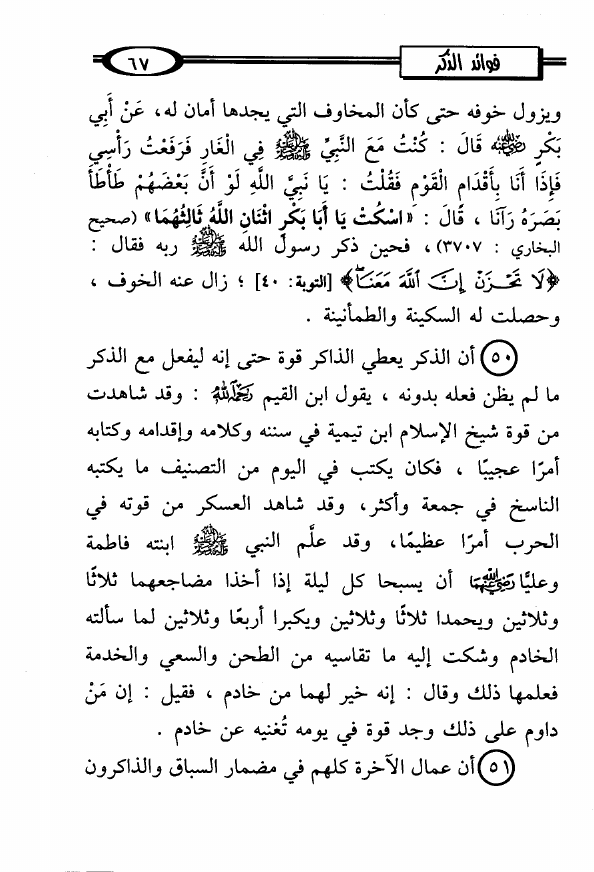 فوائد الذكر
٦٧
ويزول خوفه حتى كأن المخاوف التي يجدها أمان له، عَنْ أَبِي
بَكْرٍ رضي الله عنه قَالَ : كُنْتُ مَعَ النَّبِيِّ ﷺ فِي الْغَارِ فَرَفَعْتُ رَأْسِي
فَإِذَا أَنَا بِأَقْدَامِ الْقَوْمِ فَقُلْتُ : يَا نَبِيَّ اللَّهِ لَوْ أَنَّ بَعْضَهُمْ طَأْطَأَ
بَصَرَهُ رَآنَا ، قَالَ : «اسْكُتْ يَا أَبَا بَكْرٍ اثْنَانِ اللَّهُ ثَالِثُهُمَا» (صحيح
البخاري : ٣٧٠٧)، فحين ذكر رسول الله ﷺ ربه فقال :
﴿لَا تَحْزَنْ إِنَّ اللَّهَ مَعَنَا﴾ [التوبة: ٤٠] ؛ زال عنه الخوف ،
وحصلت له السكينة والطمأنينة .
٥٠ أن الذكر يعطي الذاكر قوة حتى إنه ليفعل مع الذكر
ما لم يظن فعله بدونه ، يقول ابن القيم رحمه الله : وقد شاهدت
من قوة شيخ الإسلام ابن تيمية في سننه وكلامه وإقدامه وكتابه
أمرًا عجيبًا ، فكان يكتب في اليوم من التصنيف ما يكتبه
الناسخ في جمعة وأكثر، وقد شاهد العسكر من قوته في
الحرب أمرًا عظيمًا، وقد علَّم النبي ﷺ ابنته فاطمة
وعليًّا رضي الله عنهما أن يسبحا كل ليلة إذا أخذا مضاجعهما ثلاثًا
وثلاثين ويحمدا ثلاثًا وثلاثين ويكبرا أربعًا وثلاثين لما سألته
الخادم وشكت إليه ما تقاسيه من الطحن والسعي والخدمة
فعلمها ذلك وقال : إنه خير لهما من خادم ، فقيل : إن مَنْ
داوم على ذلك وجد قوة في يومه تُغنيه عن خادم .
٥١ أن عمال الآخرة كلهم في مضمار السباق والذاكرون